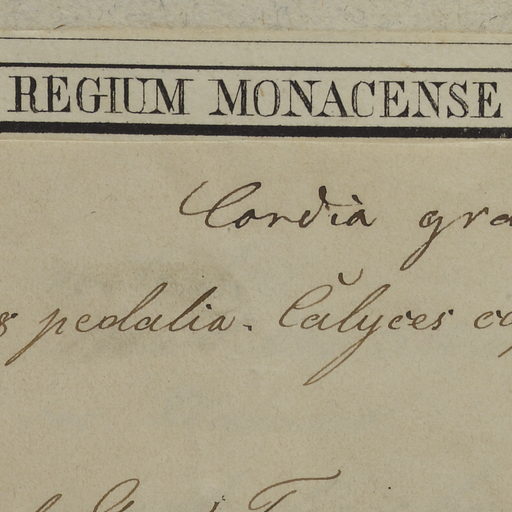 REGIUM MONACENSE
Cordia gra
s pedalia. Calyces co